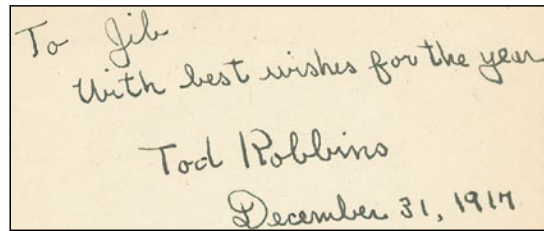 To Jib
With best wishes for the year
Tod Robbins
December 31, 1917